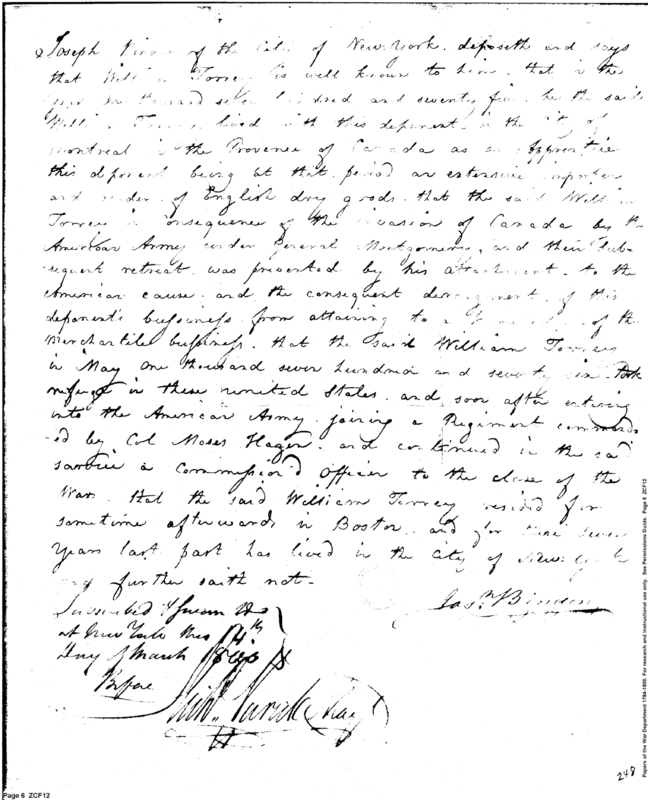 Joseph of the City of New York. deposeth and says
that William Torrey is well known to him. that in the
year one thousand seven hundred and seventy five he the said
William Torrey lived with this deponent in the City of
Montreal in the Province of Canada as an Apprentice
this deponent being at that period an extensive importer
and vender of English dry goods. that the said William
Torrey in consequence of the invasion of Canada by the
American Army under General Montgomery, and their sub-
sequent retreat was prevented by his attachment to the
American cause and the consequent derangement of this
deponent's bussiness from attaining to a of the
Merchantile bussiness. that the said William Torrey
in May one thousand seven hundred and seventy six took
refuge in these united States. and soon after entering
into the American Army joining a Regiment command-
ed by Col Moses Hazen. and continued in the said
service a Commission'd Officer to the close of the
War. that the said William Torrey resided for
sometime afterwards in Boston and for these seven
Years last past has lived in the City of New York
and further saith not-
Jos.h Bindon
Subscribed & Sworn to
at New York this 4th
Day of March 1800
Before
Rich.d Varick May.r
248
Page 6 ZCF12
Papers of the War Department 1784-1800. For research and instructional use only. See Permissions Guide. Page 6 ZCF12